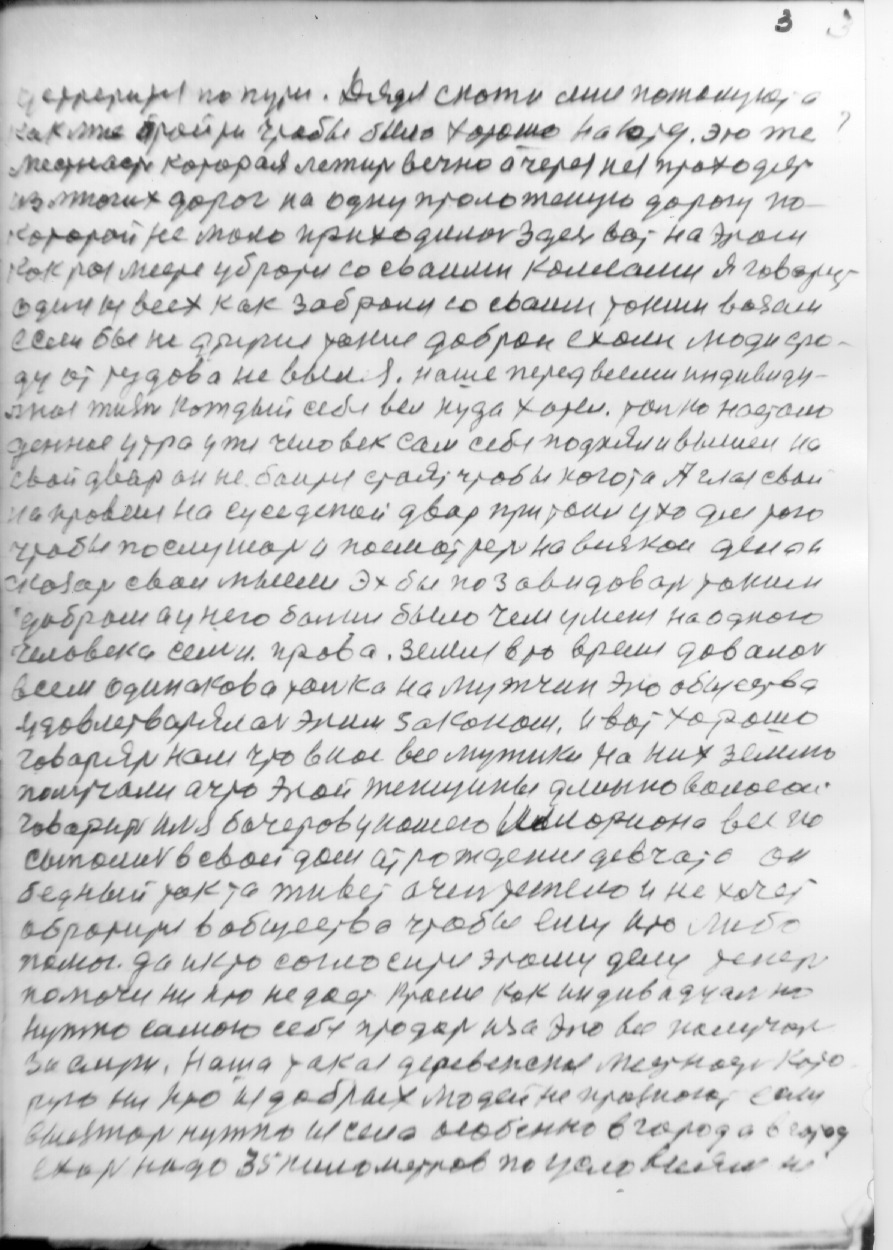 3 3
по пути. Дядя скажи мне пожалуста
как же пройти чтобы было хорошо на юга. Это же ?
меснасть которая лежит вечно а через нея проходят
из многих дорог на одну проложеную дорогу по-
которой не мало приходилось здесь вот на этом
как раз месте убрати со сваими колесами я говарит
один из всех как забрали со сваим таким возам
если бы не такие добрыи ехали люди сро-
ду от тудова не вылез. наше перед всеми индивиду-
лная жизнь каждый себя вел куда хотел. толко настало
денное утра уже человек сам себя поднял и вышел на
свой двар он не боится стоят чтобы кого та А глаз свой
направил на суседской двар притом ухо для того
чтобы послушат и посмотрет на всякои дела и
сказат свои мысли Эх бы позавидоват таким
добром а у него болши было чем у меня на одного
человека семи. права. Земля в то время довалос
всем одинакова толка на мужчин Это общества
удовлетварялас этим законом. И вот хорошо
говарят нам что в нас все мужики на них землю
получали а что Этой женщины длинноволосой
говарит имя бочеров у нашего Илариона все по
сыпались в свой дом от рождения девчата он
бедный так та живет очен тяжело и не хочет
обратится в общества чтобы ему кто либо
помог. да и кто согласится этому делу теперь
помочи ни кто не даст кроме как индивидуално
нужно самою себя продат и за Это все получат
за смерт. Наша такая деревенская меснаст кото-
рую ни кто из добрых людей не прознают если
выезжат нужно из села особенно в города в город
ехат надо 35 километров по условиям не